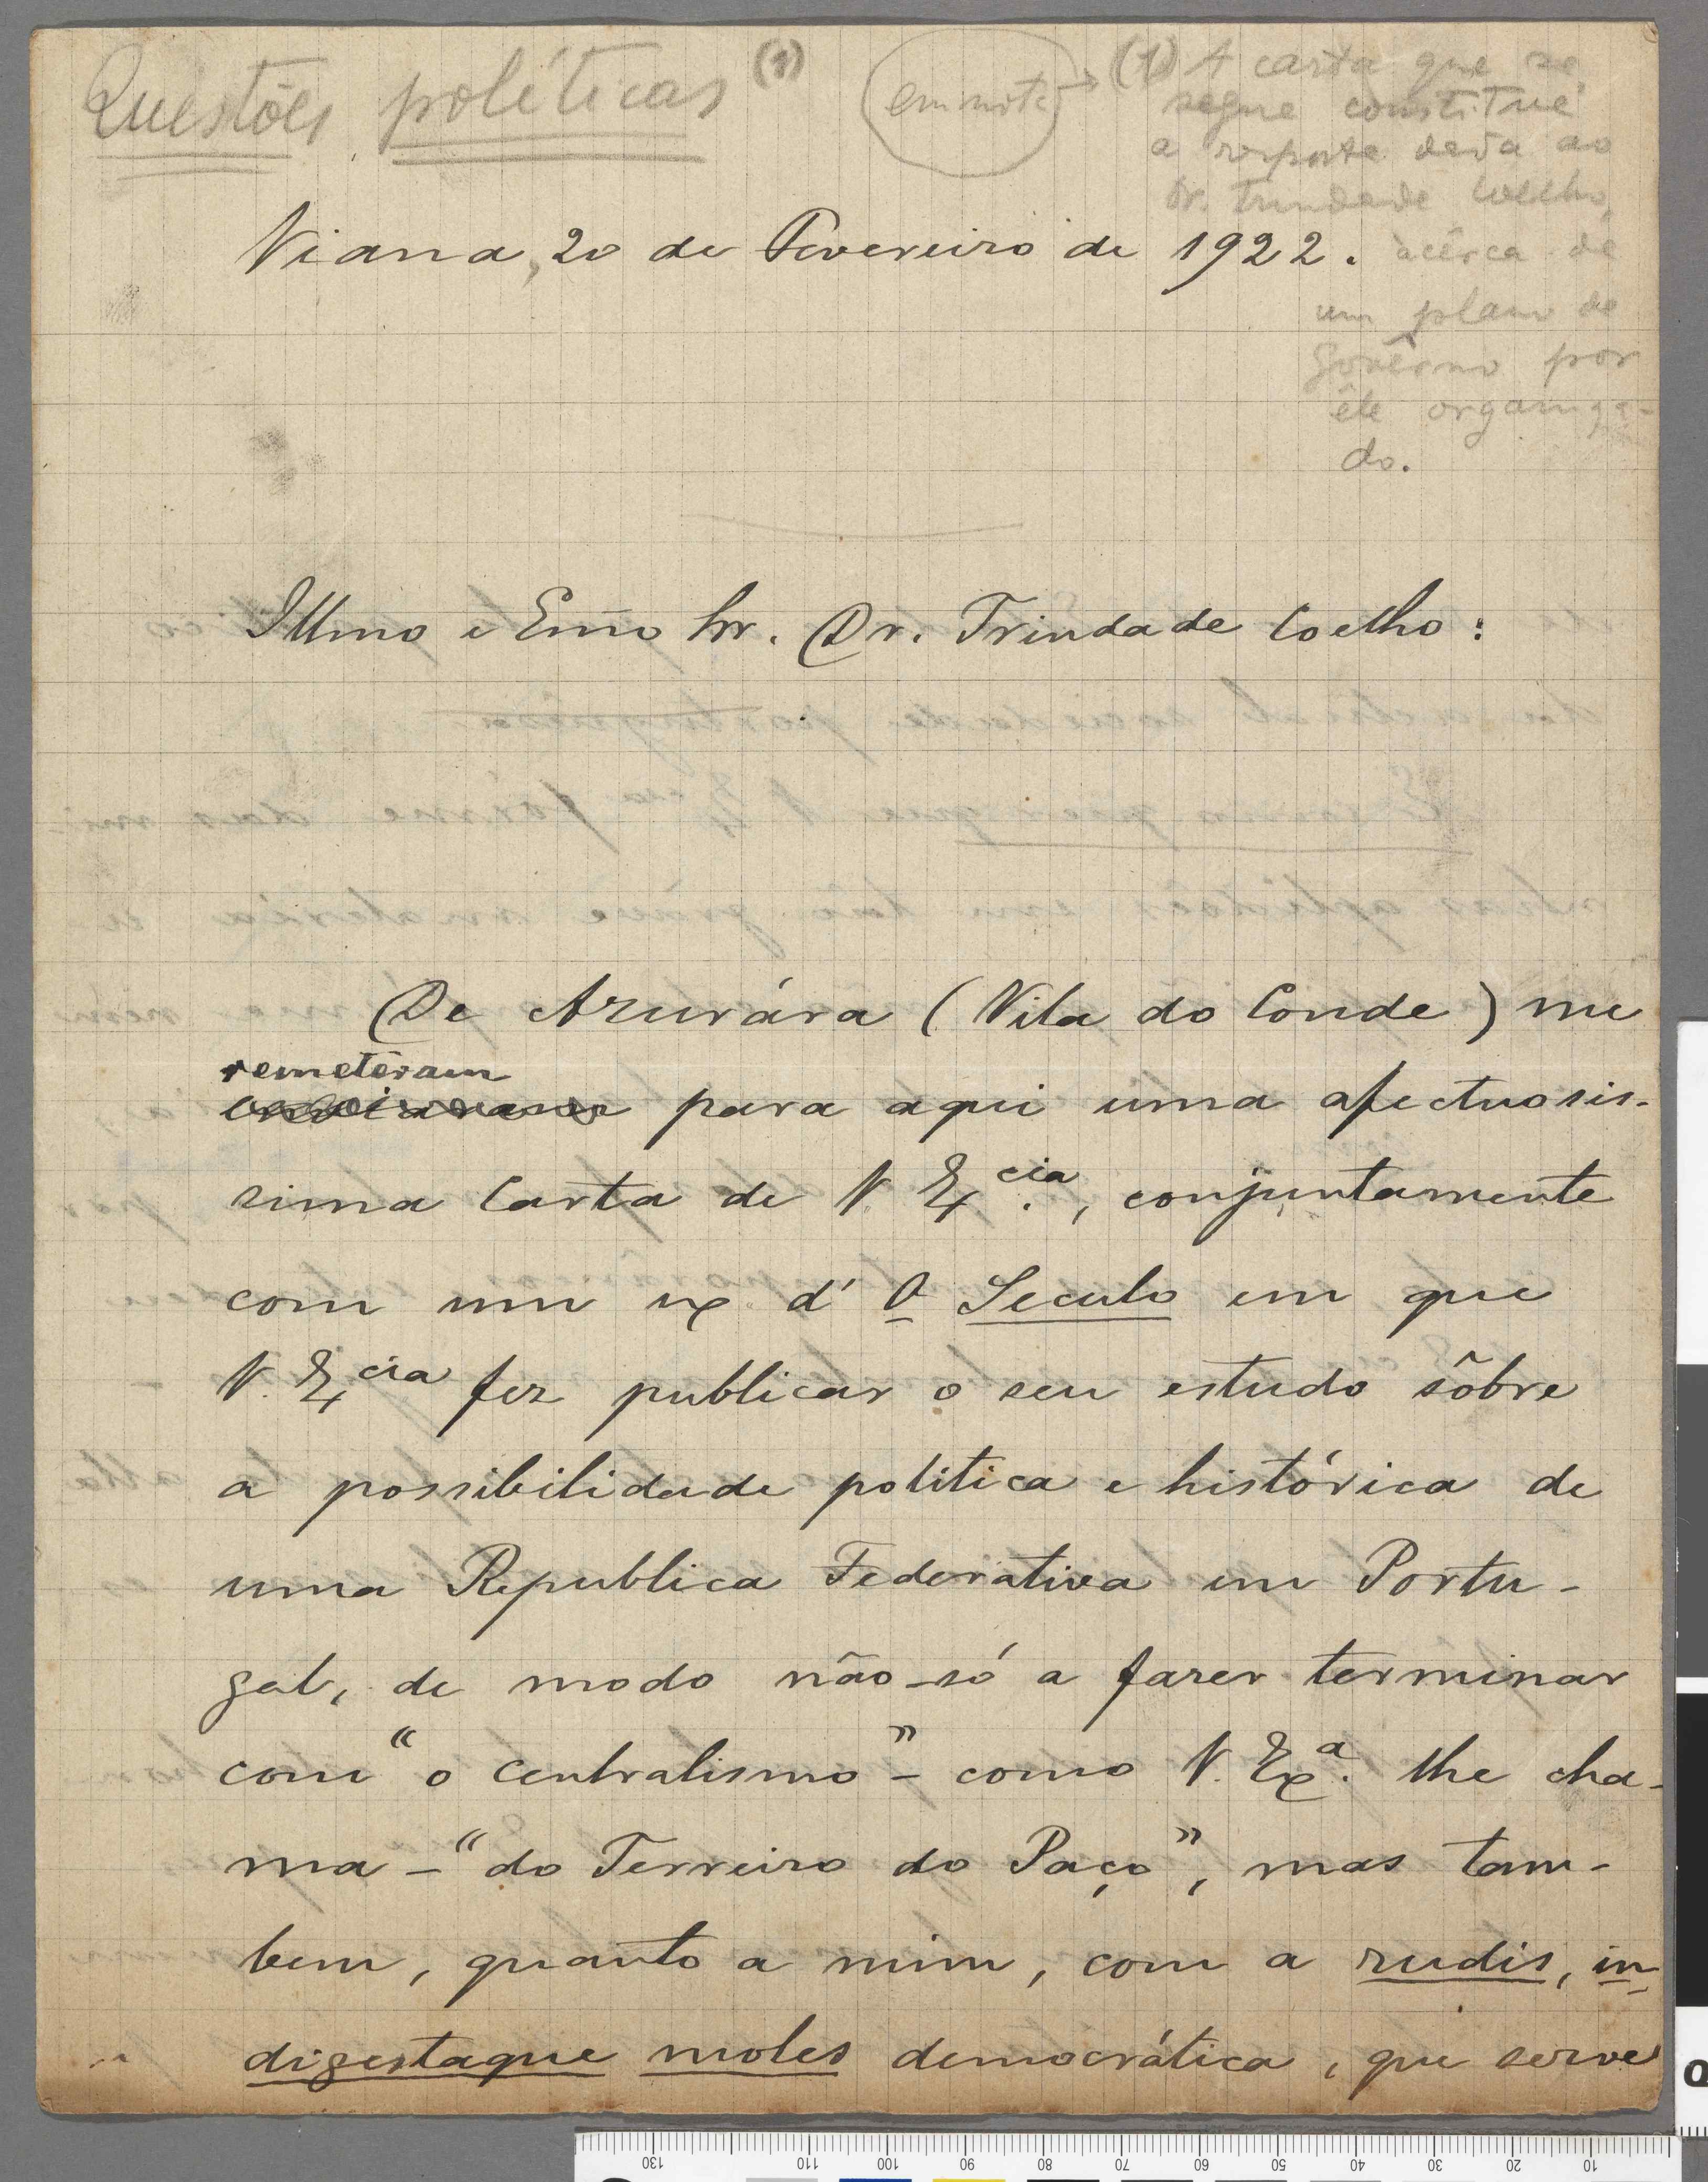 Questões políticas (1)
em nota
(1) A carta que se
segue constitue
a resposta dada ao
Dr. Trindade Coelho,
acêrca de
um plano de
Govêrno por
êle organiza-
do.
Viana, 20 de Fevereiro de 1922.
Illmo e Exmo Snr. Dr. Trindade Coelho:
De Azurára (Vila do Conde) me
remetêram
para aqui uma afectuosis-
sima carta de V. Excia., conjuntamente
com um ex. d' O Seculo em que
V. Excia fez publicar o seu estudo sôbre
a possibilidade politica e histórica de
uma Republica Federativa em Portu-
gal, de modo não-só a fazer terminar
com "o centralismo" - como V. Exa. lhe cha-
ma - "do Terreiro do Paço", mas tam-
bem, quanto a mim, com a rudis, in-
digestaque moles democrática, que serve